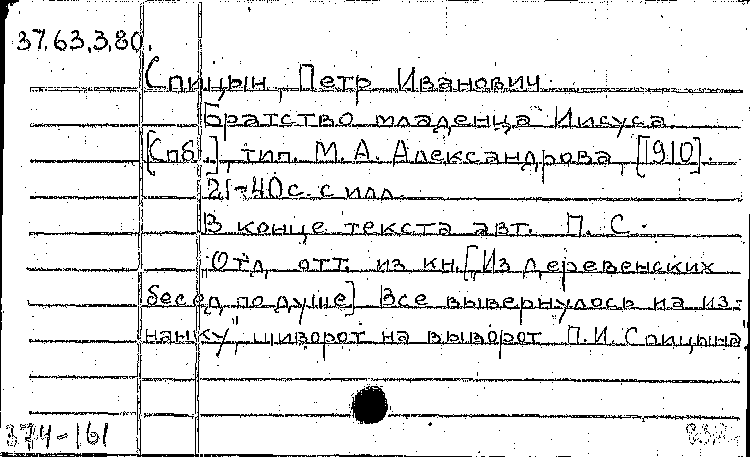 37.63.3.80.
Спицын, Петр Иванович.
Братство младенца Иисуса.
[Спб.], тип. М. А. Александрова, [910].
21-40 с. с илл.
В конце текста авт. П. С.
"Отд. отт. из кн. [Из деревенских
бесед по душе] Все вывернулось на из-
нанку", шиворот на выворот П. И. Спицына"
374-161